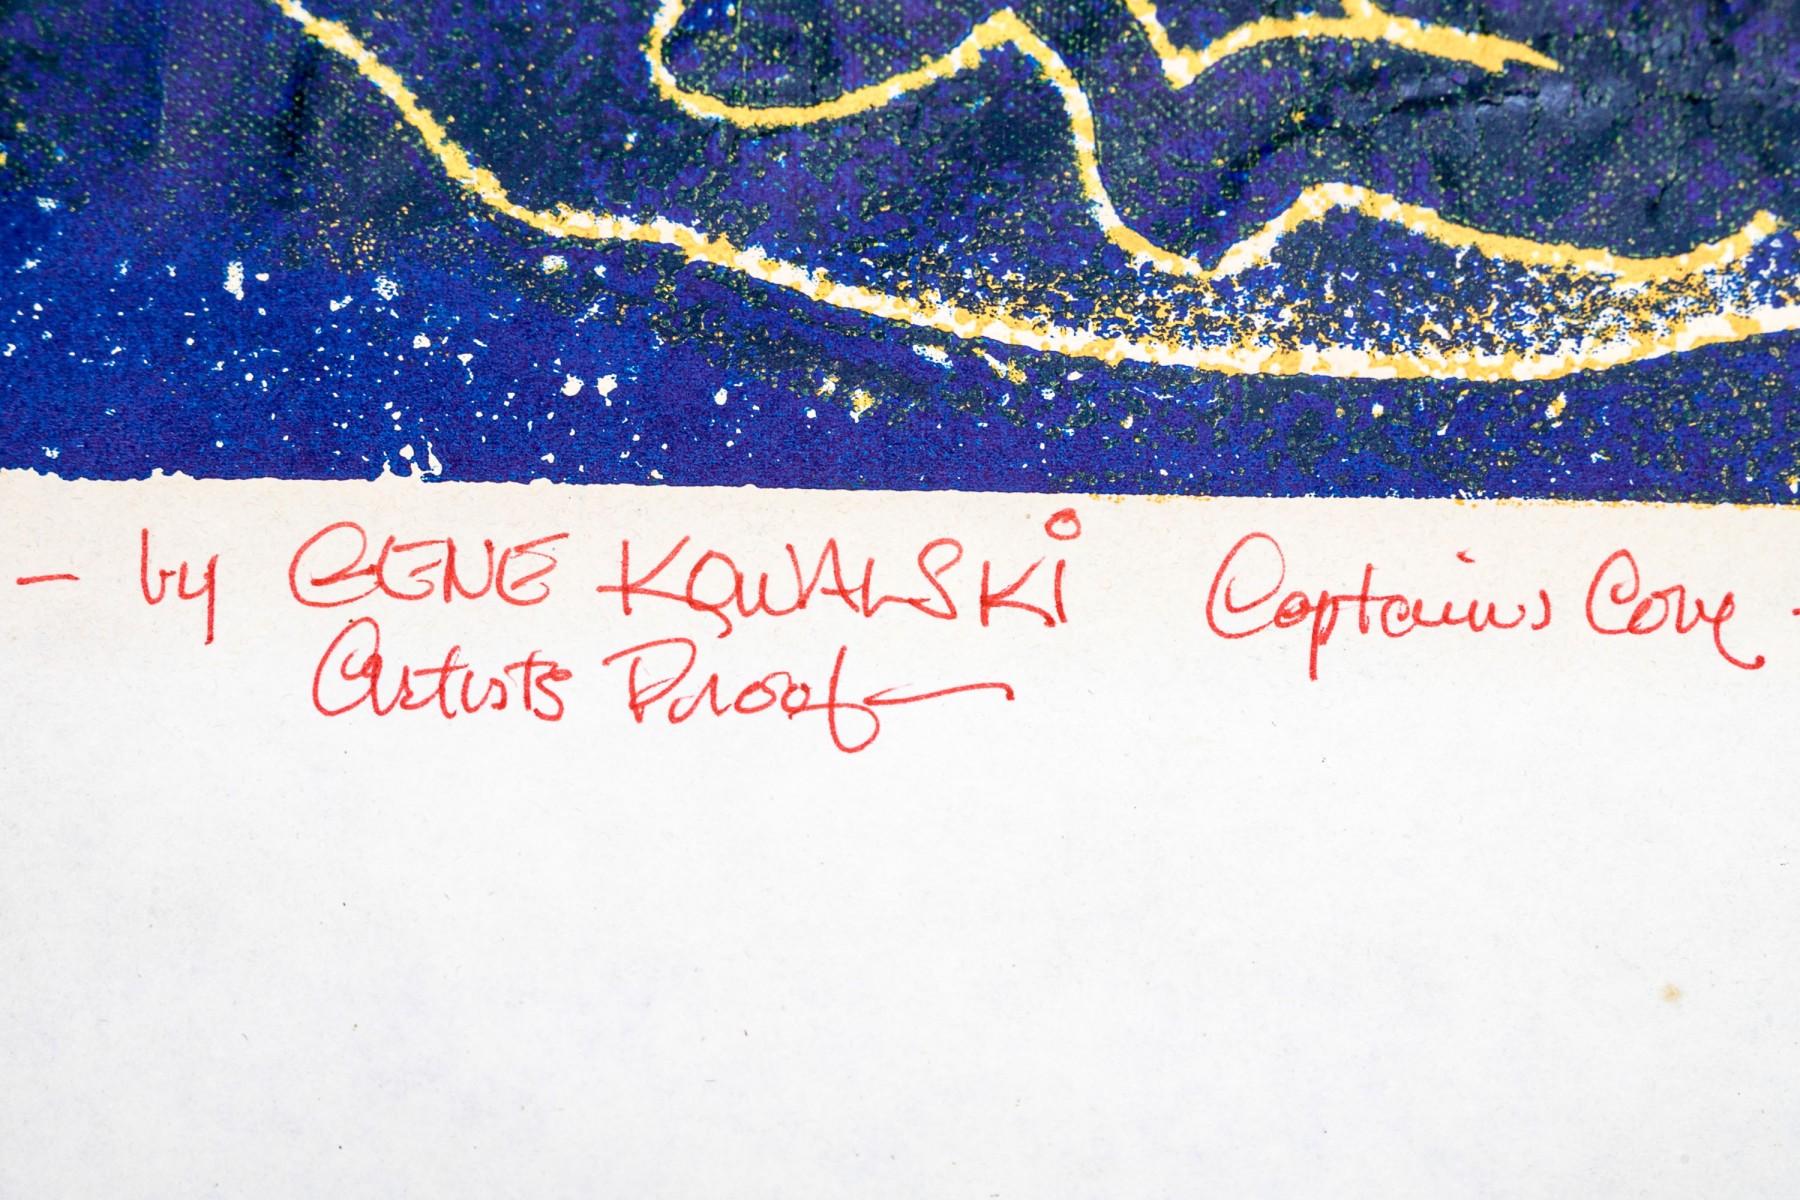 - by GENE KOWALSKi Captains Cove -
Artists Proof